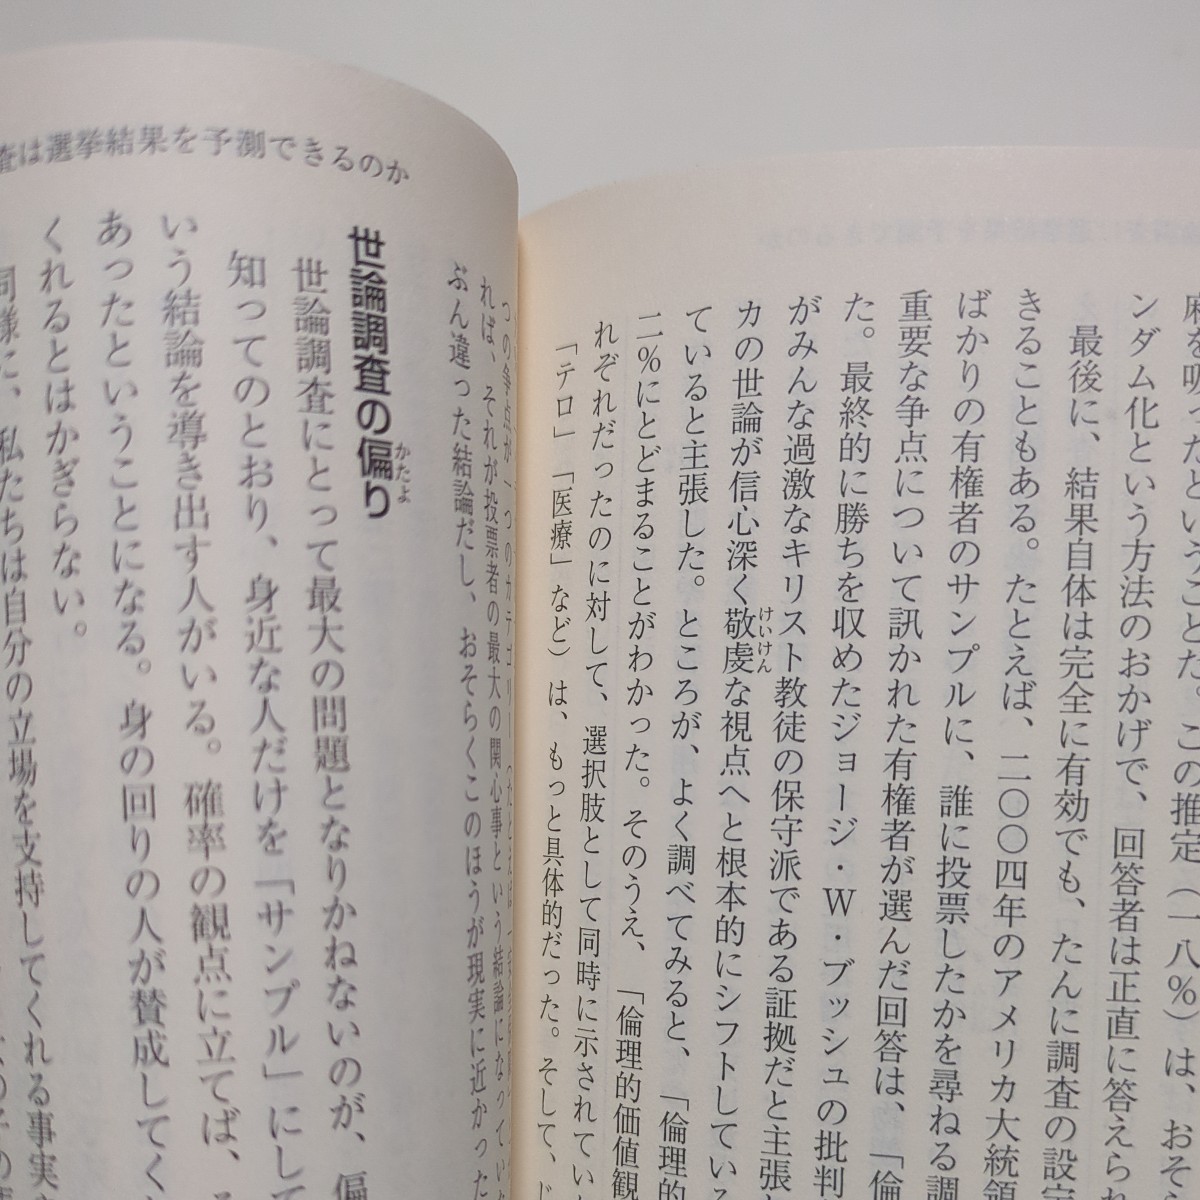 麻を吸ったということだ。この推定(一八%)は、おそ
ンダム化という方法のおかげで、回答者は正直に答えられ
最後に、結果自体は完全に有効でも、たんに調査の設定
きることもある。たとえば、二〇〇四年のアメリカ大統領
ばかりの有権者のサンプルに、誰に投票したかを尋ねる調
重要な争点について訊かれた有権者が選んだ回答は、「倫
た。最終的に勝ちを収めたジョージ・W・ブッシュの批判
がみんな過激なキリスト教徒の保守派である証拠だと主張
カの世論が信心深く敬虔な視点へと根本的にシフトしている
けいけん
ていると主張した。ところが、よく調べてみると、「倫理的
二%にとどまることがわかった。そのうえ、「倫理的価値観
れぞれだったのに対して、選択肢として同時に示されてい
「テロ」「医療」など)は、もっと具体的だった。そして、じ
査は選挙結果を予測できるのか
つの争点が一つのカテゴリー(たとえば「安全
れば、それが投票者の最大の関心事という結論になってい
ぶん違った結論だし、おそらくこのほうが現実に近かった
世論調査の偏り
かたよ
世論調査にとって最大の問題となりかねないのが、偏
知ってのとおり、身近な人だけを「サンプル」にして
いう結論を導き出す人がいる。確率の観点に立てば、
あったということになる。身の回りの人が賛成してく
くれるとはかぎらない。
同様に、私たちは自分の立場を支持してくれる事実